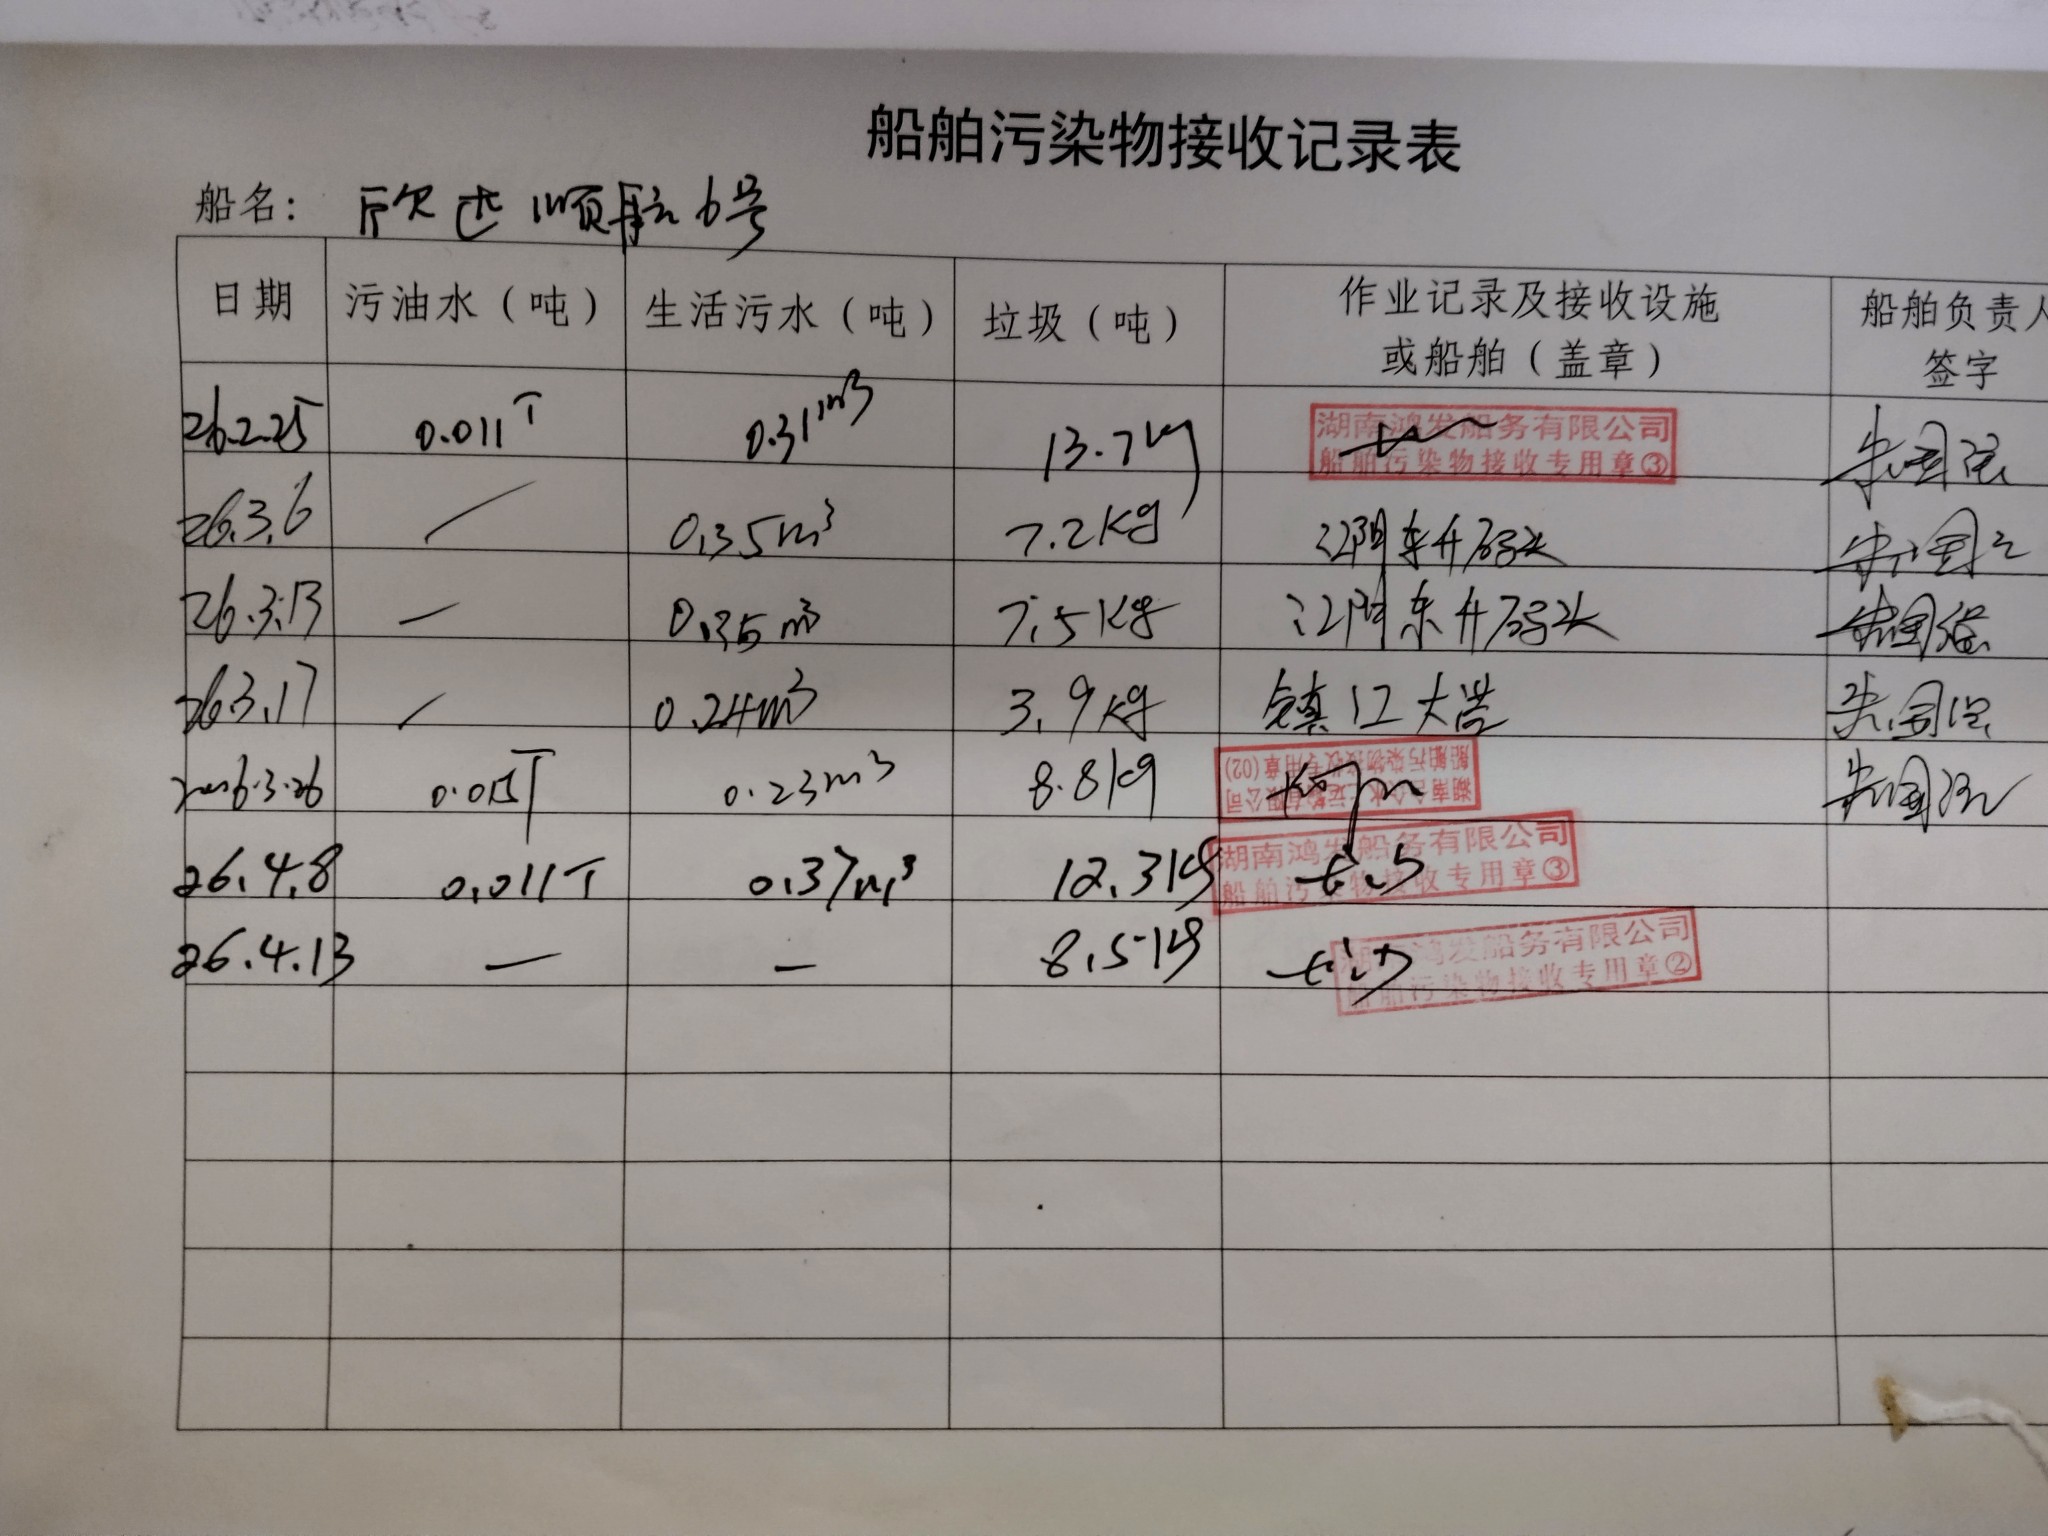 船舶污染物接收记录表
船名： 欣达顺航6号
日期 污油水（吨） 生活污水（吨） 垃圾（吨） 作业记录及接收设施或船舶（盖章） 船舶负责人签字
26.2.25 0.011T 0.31m³ 13.7kg 湖南鸿发船务有限公司 船舶污染物接收专用章③ 朱国强
26.3.6 / 0.35m³ 7.2kg 江阴东升码头 朱国
26.3.13 — 0.35m³ 7.5kg 江阴东升码头 朱国强
26.3.17 / 0.24m³ 3.9kg 镇江大港 朱国强
2026.3.26 0.23m³ 8.8kg 船舶污染物接收专用章(02) 朱国强
26.4.8 0.011T 0.37m³ 12.3kg 湖南鸿发船务有限公司 船舶污染物接收专用章③ 长沙
26.4.13 — — 8.5kg 湖南鸿发船务有限公司 船舶污染物接收专用章② 长沙